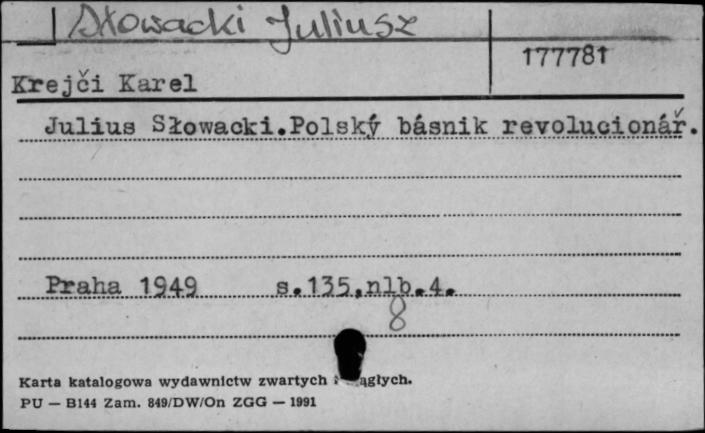 Słowacki Juliusz
177781
Krejči Karel
Julius Słowacki.Polský básnik revolucionář.
Praha 1949 s.135,nlb.4.
8
Karta katalogowa wydawnictw zwartych i
PU — B144 Zam. 849/DW/On ZGG — 1991